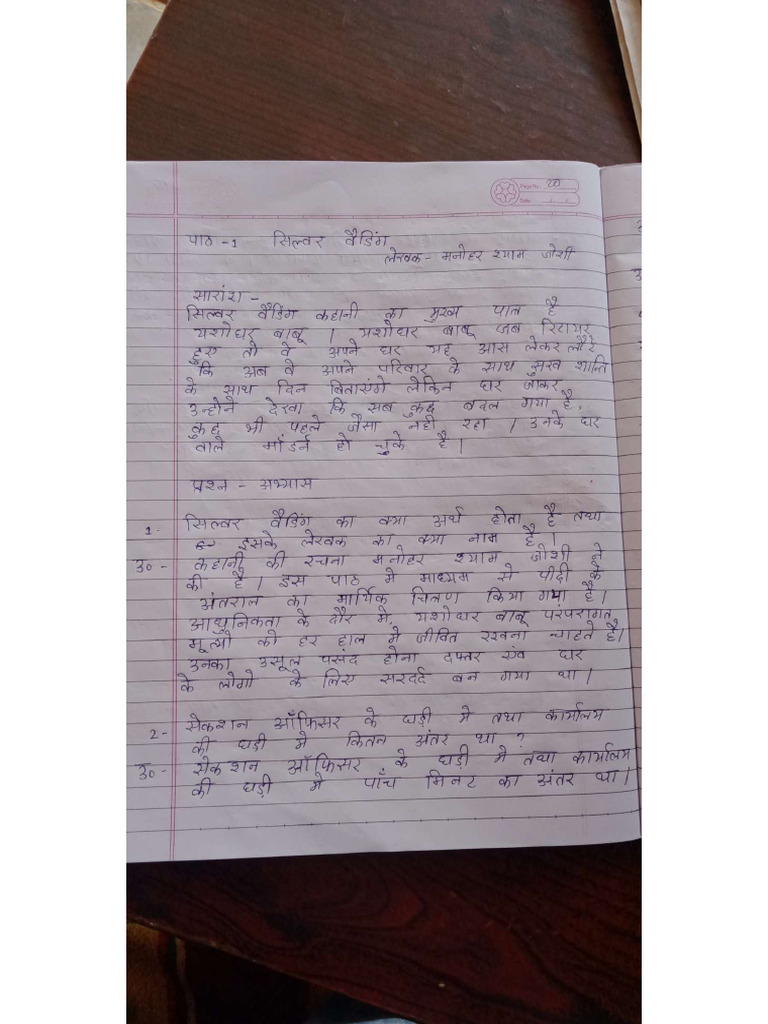 Page No. 20
Date / /
पाठ -1 सिल्वर वैडिंग
लेखक - मनोहर श्याम जोशी
सारांश -
सिल्वर वैडिंग कहानी का मुख्य पात्र है
यशोधर बाबू । यशोधर बाबू जब रिटायर
हुए तो वे अपने घर यह आस लेकर लौटे
कि अब वे अपने परिवार के साथ सुख शान्ति
के साथ दिन बितासंगे लेकिन घर जाकर
उन्होने देखा कि सब कुछ बदल गया है,
कुछ भी पहले जैसा नही रहा । उनके घर
वाले मॉडर्न हो चुके है ।
प्रश्न - अभ्यास
1 - सिल्वर वैडिंग का क्या अर्थ होता है तथा
इसके लेखक का क्या नाम है ।
उ० - कहानी की रचना मनोहर श्याम जोशी ने
की है । इस पाठ मे माध्यम से पीढी के
अंतराल का मार्यिक चित्रण किया गया है।
आधुनिकता के दौर मे, यशोधर बाबू परंपरागत
मूल्यो को हर हाल मे जीवित रखना चाहते है।
उनका उसूल पसंद होना दफ्तर एंव घर
के लोगो के लिए सरदर्द बन गया था ।
2 - सेकशन ऑफिसर के घड़ी मे तथा कार्यालय
की घड़ी मे कितन अंतर था ?
उ० - सेकशन ऑफिसर के घड़ी मे तथा कार्यालय
की घड़ी मे पाँच मिनट का अंतर था ।